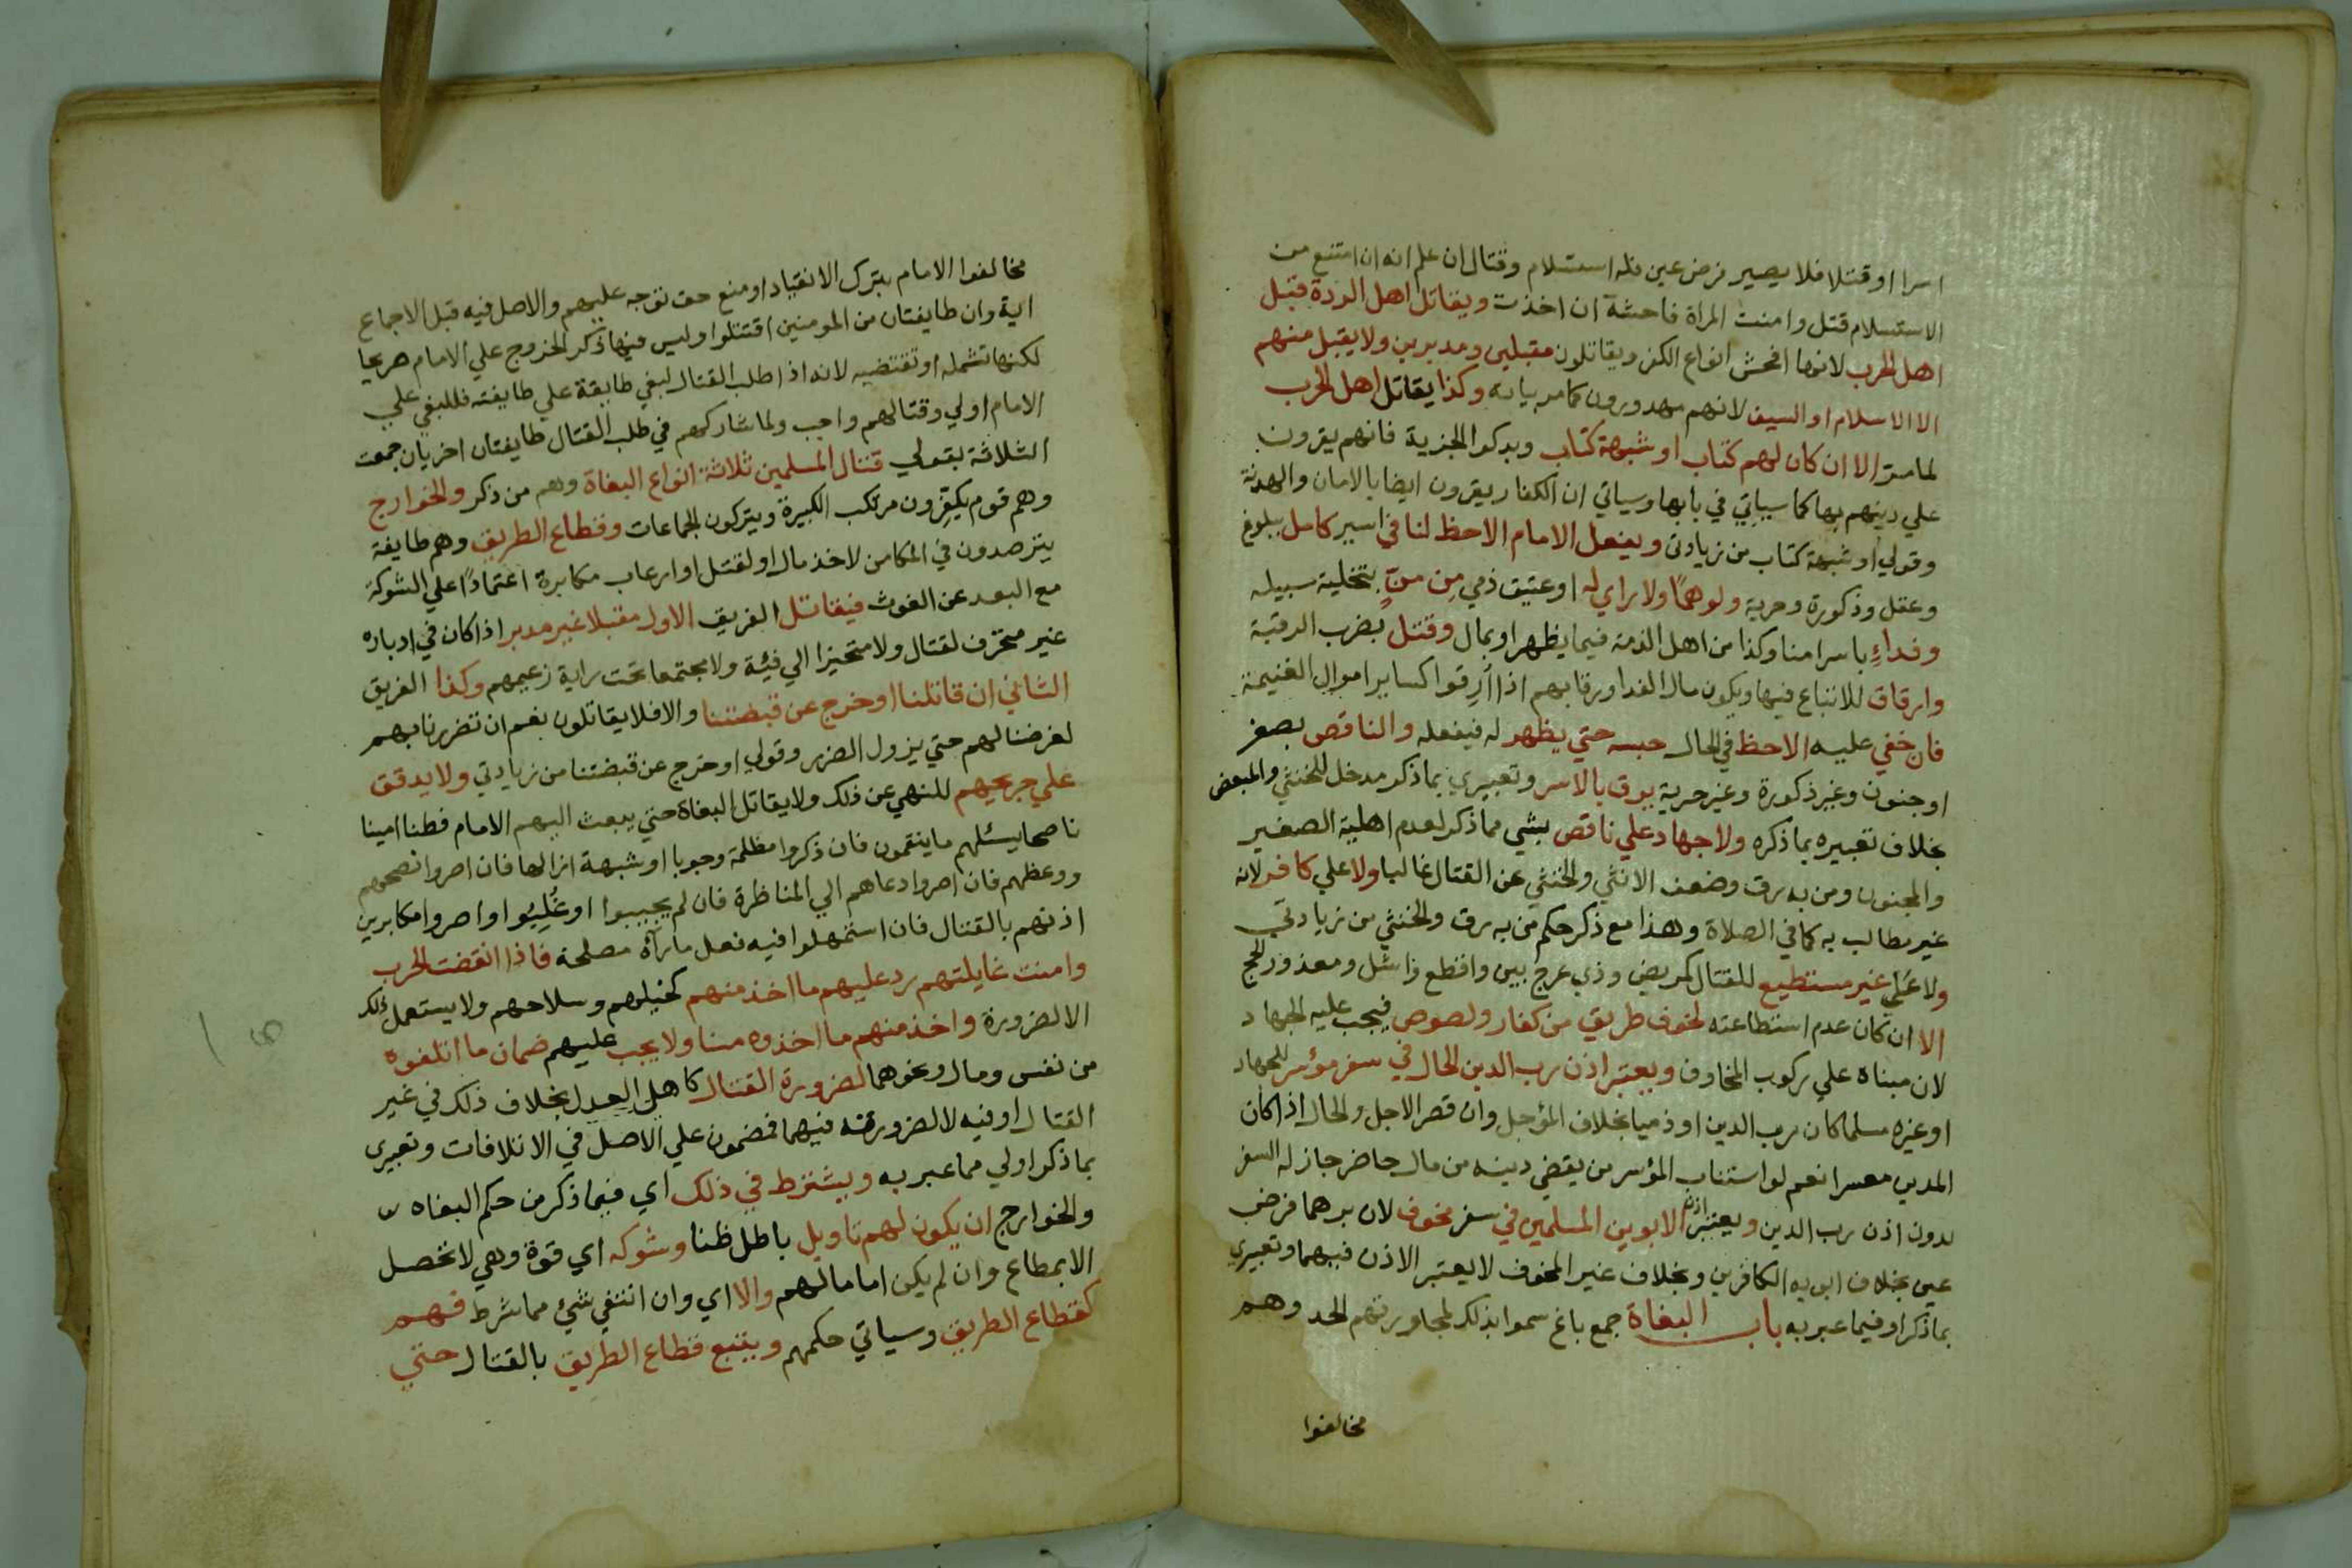 اسرا او قتلا فلا يصير فرض عين فله استسلام وقتال ان علم انه ان امتنع من
الاستسلام قتل وامنت المراة فاحشة ان اخذت ويقاتل اهل الردة قبل
اهل الحرب لانها افحش انواع الكفر ويقاتلون مقبلين ومدبرين ولا يقبل منهم
الا الاسلام او السيف لانهم مهدورون كما مر بيانه وكذا يقاتل اهل الحرب
لما مر الا ان كان لهم كتاب او شبهة كتاب وبذلوا الجزية فانهم يقرون
علي دينهم بها كما سياتي في بابها وسياتي ان الكفار يقرون ايضا بالامان والهدنة
وقولي او شبهة كتاب من زيادتي ويفعل الامام الاحظ لنا في اسير كامل ببلوغ
وعقل وذكورة وحرية ولو هما ولا راي له او عتيق ذمي مِن منٍّ بتخلية سبيله
وفداءٍ باسرا منا وكذا من اهل الذمة فيما يظهر او بمال وقتل بضرب الرقبة
وارقاق للاتباع فيها ويكون مال الفدا ورقابهم اذا أُرِقوا كساير اموال الغنيمة
فان خفي عليه الاحظ في الحال حبسه حتي يظهر له فيفعله والناقص بصغر
او جنون وغير ذكورة وغير حرية يرق بالاسر وتعبيري بما ذكر مدخل للخنثي والمبعض
بخلاف تعبيره بما ذكره ولا جهاد علي ناقص بشي مما ذكر لعدم اهلية الصغير
والمجنون ومن به رق وضعف الانثي والخنثي عن القتال غالبا ولا علي كافر لانه
غير مطالب به كما في الصلاة وهذا مع ذكر حكم من به رق والخنثي من زيادتي
ولا علي غير مستطيع للقتال كمريض وذي عرج بين واقطع واشل ومعذور للحج
الا ان كان عدم استطاعته لخوف طريق من كفار ولصوص فيجب عليه الجهاد
لان مبناه علي ركوب المخاوف ويعتبر اذن رب الدين الحال في سفر مؤسر للجهاد
او غيره مسلما كان رب الدين او ذميا بخلاف المؤجل وان قصر الاجل والحال اذا كان
المدين معسرا نعم لو استناب المؤسر من يقضي دينه من مال حاضر جاز له السفر
بدون اذن رب الدين ويعتبر اذن الابوين المسلمين في سفر مخوف لان برهما فرض
عين بخلاف ابويه الكافرين وبخلاف غير المخوف لا يعتبر الاذن فيهما وتعبيري
بما ذكر اوفي مما عبر به باب البغاة جمع باغ سموا بذلك لمجاوزتهم الحد وهم
مخالفوا
مخالفوا الامام بترك الانقياد او منع حق توجه عليهم والاصل فيه قبل الاجماع
اية وان طايفتان من المومنين اقتتلوا وليس فيها ذكر الخروج علي الامام صريحا
لكنها تشمله او تقتضيه لانه اذا طلب القتال لبغي طايفة علي طايفة فللبغي علي
الامام اولي وقتالهم واجب ولما شاركهم في طلب القتال طايفتان اخريان جمعت
الثلاثة بقولي قتال المسلمين ثلاثة انواع البغاة وهم من ذكر والخوارج
وهم قوم يكفّرون مرتكب الكبيرة ويتركون الجماعات وقطاع الطريق وهم طايفة
يترصدون في المكامن لاخذ مال او لقتل او ارعاب مكابرة اعتمادًا علي الشوكة
مع البعد عن الغوث فيقاتل الفريق الاول مقبلا غير مدبر اذا كان في ادباره
غير متحرف لقتال ولا متحيزا الي فئية ولا مجتمعا تحت راية زعيمهم وكذا الفريق
الثاني ان قاتلنا او خرج عن قبضتنا والا فلا يقاتلون نعم ان تضررنا بهم
لعرضنا لهم حتي يزول الضرر وقولي او خرج عن قبضتنا من زيادتي ولا يدقق
علي جريحهم للنهي عن ذلك ولا يقاتل البغاة حتي يبعث اليهم الامام فطنا امينا
ناصحا يسئلهم ما ينقمون فان ذكروا مظلمة وجوبا او شبهة ازالها فان اصروا نصحهم
ووعظهم فان اصروا دعاهم الي المناظرة فان لم يجيبوا او غُلِبُوا واصروا مكابرين
اذنهم بالقتال فان استمهلوا فيه فعل ما رآه مصلحة فاذا انقضت الحرب
وامنت غايلتهم رد عليهم ما اخذ منهم كخيلهم وسلاحهم ولا يستعمل ذلك
الا لضرورة واخذ منهم ما اخذوه منا ولا يجب عليهم ضمان ما اتلفوه
من نفس ومال ونحوهما لضرورة القتال كاهل العدل بخلاف ذلك في غير
القتال او فيه لا لضرورته فيهما فمضمون علي الاصل في الاتلافات وتعبيري
بما ذكر اولي مما عبر به ويشترط في ذلك اي فيما ذكر من حكم البغاه
والخوارج ان يكون لهم تاويل باطل ظنا وشوكه اي قوة وهي لا تحصل
الا بمطاع وان لم يكن اماما لهم والا اي وان انتفي شئ مما شرط فهم
كقطاع الطريق وسياتي حكمهم ويتبع قطاع الطريق بالقتال حتي